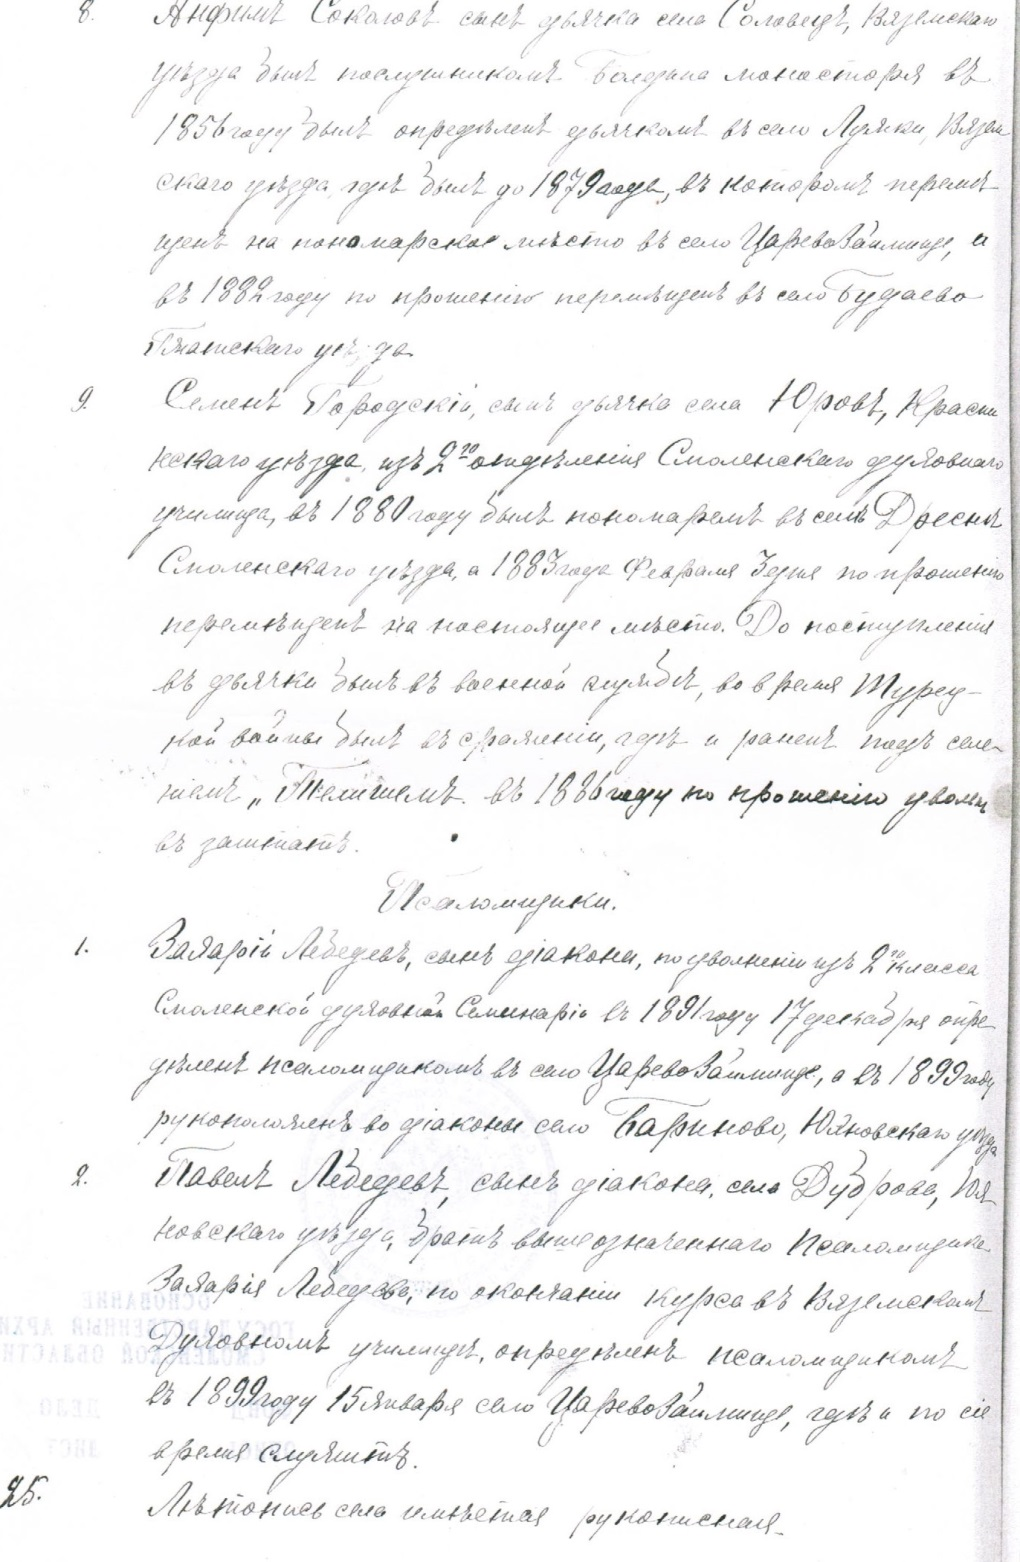 8. Анфимъ Соколовъ сынъ дьячка села Соловецъ, Вяземскаго
уѣзда былъ послушникомъ Болдина монастыря въ
1856 году былъ опредѣленъ дьячкомъ въ село Лужки, Вязем
скаго уѣзда, гдѣ былъ до 1879 года, въ которомъ перемѣ-
щенъ на пономарское мѣсто въ село Царево Займище, а
въ 1882 году по прошенію перемѣщенъ въ село Будаево
Гжатскаго уѣзда
9. Семенъ Городскій, сынъ дьячка села Юровъ, Красни
нскаго уѣзда, изъ 2го отдѣленія Смоленскаго духовнаго
училища, въ 1880 году былъ пономаремъ въ селѣ Дреснѣ
Смоленскаго уѣзда, а 1883 года Февраля 3 дня по прошенію
перемѣщенъ на настоящее мѣсто. До поступленія
въ дьячки былъ въ военной службѣ, во время Турец-
кой войны былъ въ сраженіи, гдѣ и раненъ подъ селе-
ніемъ „Телишемъ. въ 1886 году по прошенію уволен
въ заштатъ.
Псаломщики.
1. Захарій Лебедевъ, сынъ діакона, по увольненіи изъ 2го класса
Смоленской духовной Семинаріи въ 1891 году 17 декабря опре-
дѣленъ псаломщикомъ въ село Царево Займище, а въ 1899 году
рукоположенъ во діаконы село Бариново, Юхновскаго уѣзда
2. Павелъ Лебедевъ, сынъ діакона, села Дуброва, Юх
новскаго уѣзда, братъ вышеозначеннаго псаломщика
Захарія Лебедева, по окончаніи курса въ Вяземскомъ
Духовномъ училищѣ, опредѣленъ псаломщикомъ
въ 1899 году 15 января село Царево Займище, гдѣ и по сіе
время служитъ.
25. Лѣтопись села имѣется рукописная.
ОСНОВАНИЕ
ГОСУДАРСТВЕННЫЙ АРХИ
СМОЛЕНСКОЙ ОБЛАСТИ
ДЕЛО